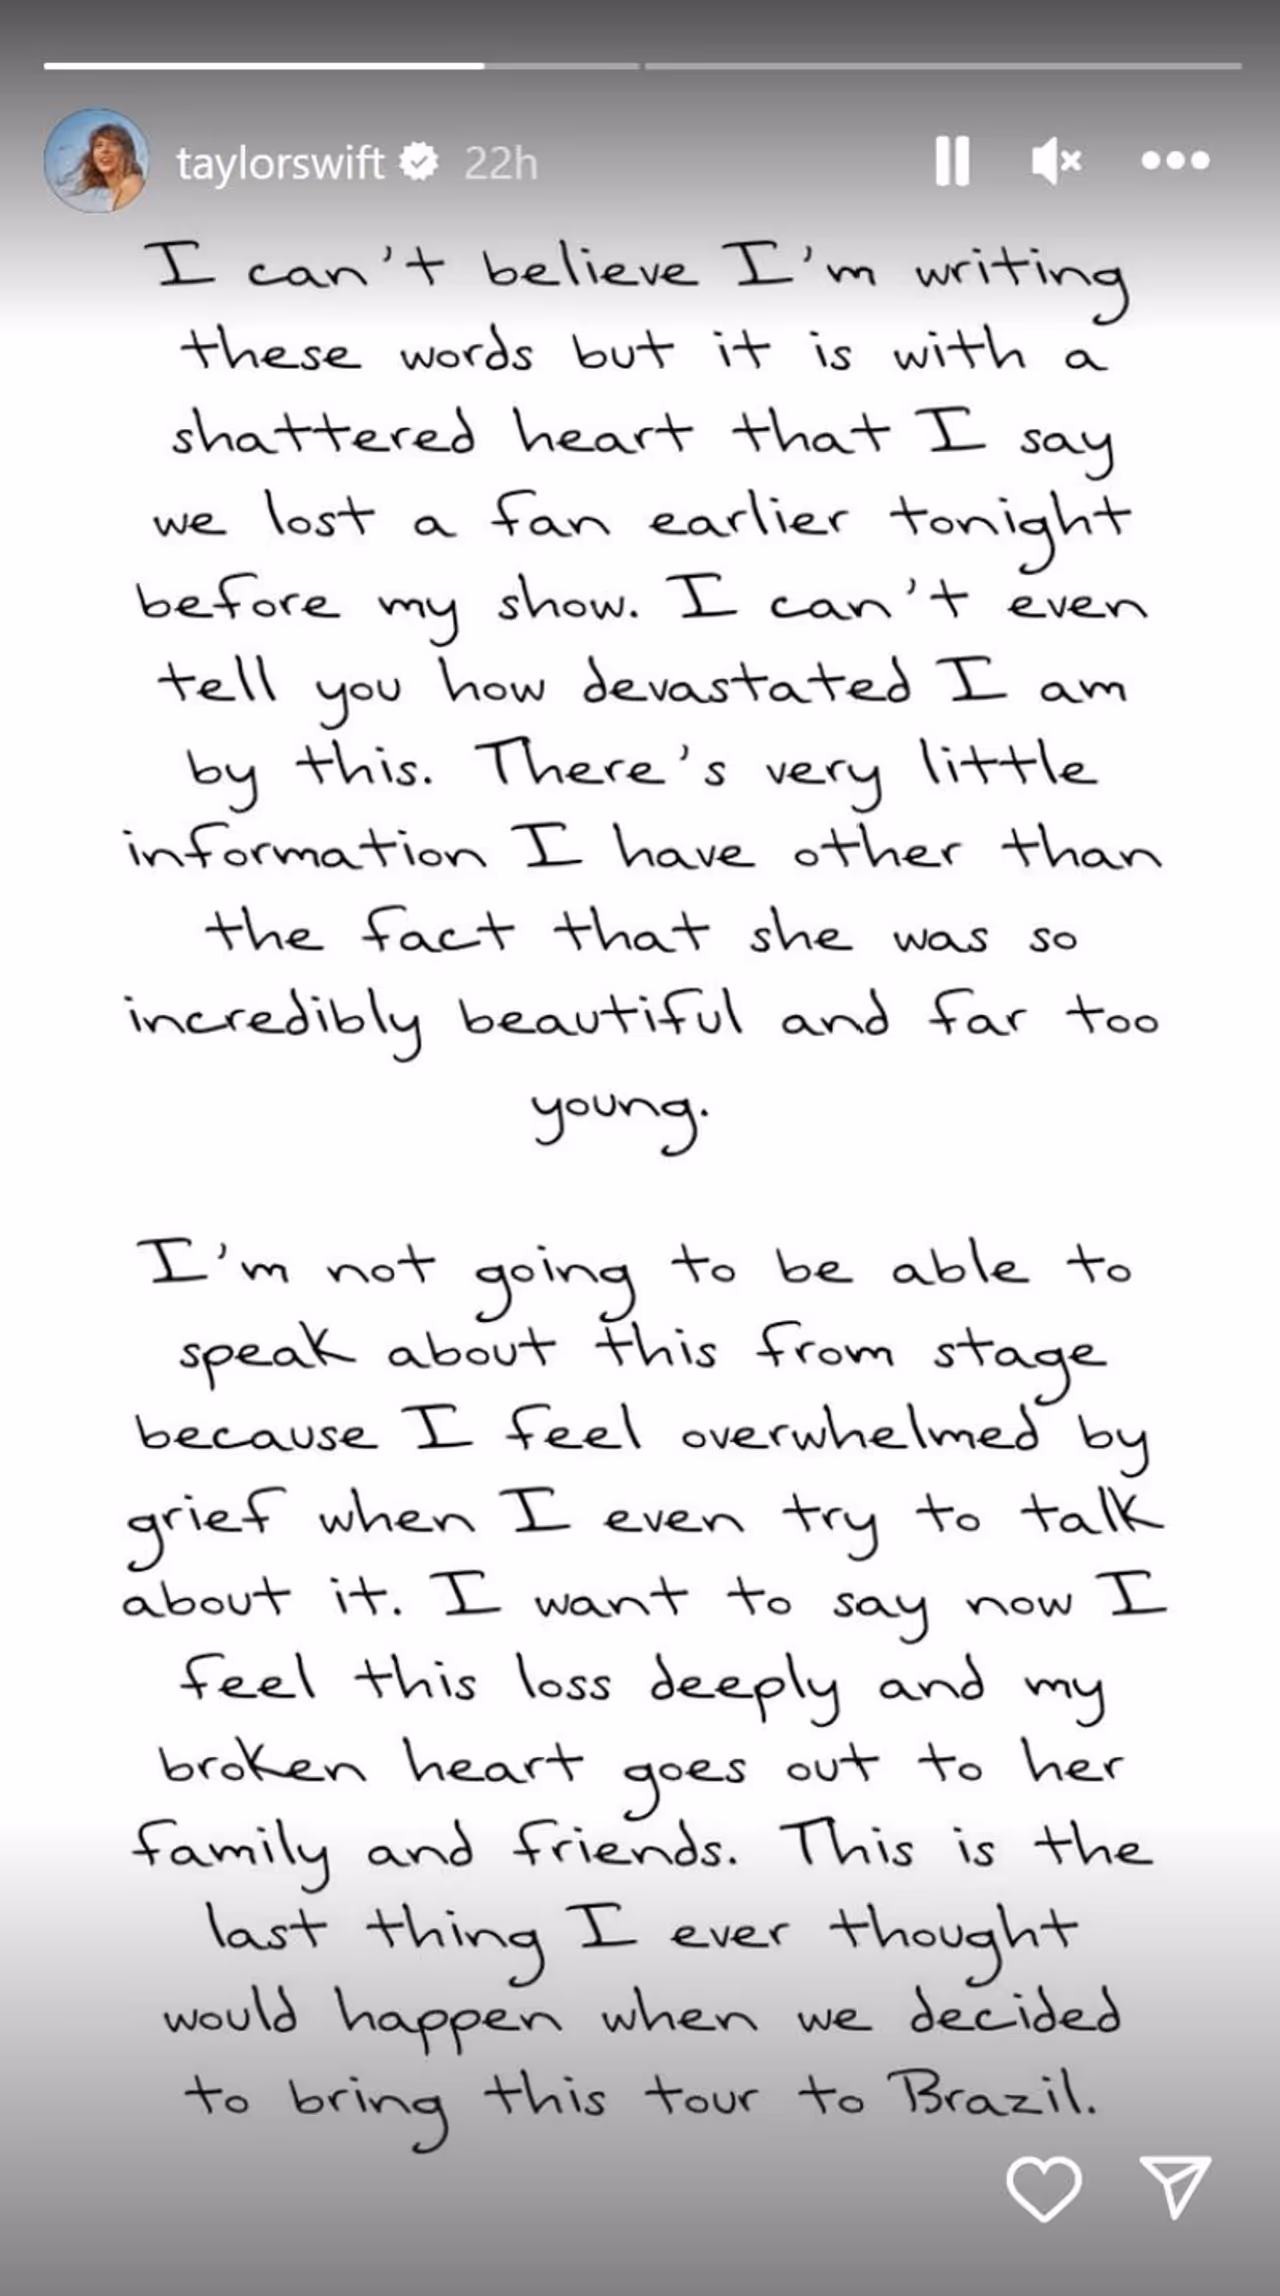 taylorswift 22h
I can't believe I'm writing
these words but it is with a
shattered heart that I say
we lost a fan earlier tonight
before my show. I can't even
tell you how devastated I am
by this. There's very little
information I have other than
the fact that she was so
incredibly beautiful and far too
young.
I'm not going to be able to
speak about this from stage
because I feel overwhelmed by
grief when I even try to talk
about it. I want to say now I
feel this loss deeply and my
broken heart goes out to her
family and friends. This is the
last thing I ever thought
would happen when we decided
to bring this tour to Brazil.